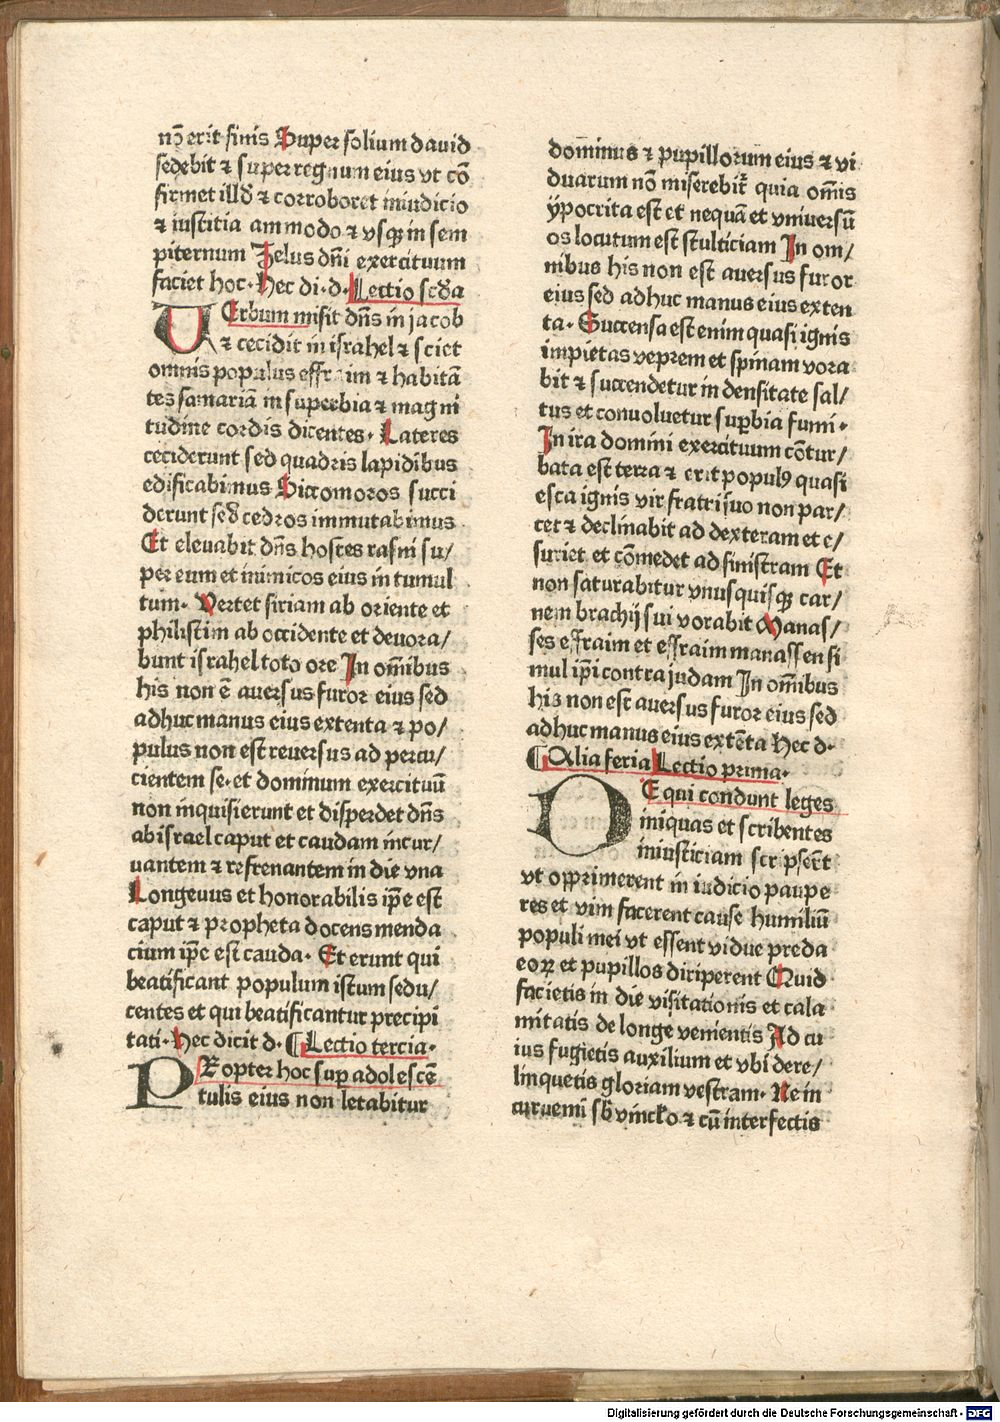 nō erit finis Super solium david
sedebit ⁊ super regnum eius vt cō
firmet illd̄ ⁊ corroboret in iudicio
⁊ iustitia ammodo ⁊ vsqꝫ in sem
piternum Zelus dn̄i exercituum
faciet hoc. Hec di. d. Lectio scd̄a
VErbum misit dn̄s in jacob
⁊ cecidit in israhel ⁊ sciet
omnis populus effraim ⁊ habitā
tes samariā in superbia ⁊ magni
tudine cordis dicentes. Lateres
ceciderunt sed quadris lapidibus
edificabimus Siccomoros succi
derunt sed̄ cedros immutabimus
Et elevabit dn̄s hostes rasni su/
per eum et inimicos eius in tumul
tum. Vertet siriam ab oriente et
philistim ab occidente et devora/
bunt israhel toto ore In om̄ibus
his non ē aversus furor eius sed
adhuc manus eius extenta ⁊ po/
pulus non est reversus ad percu/
cientem se. et dominum exercituū
non inquisierunt et disperdet dn̄s
ab israel caput et caudam incur/
vantem ⁊ refrenantem in die vna
Longeuus et honorabilis ip̄e est
caput ⁊ propheta docens menda
cium ip̄e est cauda. Et erunt qui
beatificant populum istum sedu/
centes et qui beatificantur precipi
tati. Hec dicit d. ¶ Lectio tercia.
PRopter hoc suꝑ adolescē
tulis eius non letabitur
dominus ⁊ pupillorum eius ⁊ vi
duarum nō miserebit᷑ quia om̄is
ypocrita est et nequā et vniversū
os locutum est stulticiam In om/
nibus his non est aversus furor
eius sed adhuc manus eius exten
ta. Succensa est enim quasi ignis
impietas veprem et spinam vora
bit ⁊ succendetur in densitate sal/
tus et convoluetur suꝑbia fumi.
In ira domini exercituum cōtur/
bata est terra ⁊ erit populꝰ quasi
esca ignis vir fratri suo non par/
cet ⁊ declinabit ad dexteram et e/
suriet et cōmedet ad sinistram Et
non saturabitur vnusquisqꝫ car/
nem brachij sui vorabit Manas/
ses effraim et effraim manassen si
mul ip̄i contra judam In om̄ibus
his non est aversus furor eius sed
adhuc manus eius extēta Hec d.
¶ Alia feria Lectio prima.
VE qui condunt leges
iniquas et scribentes
iniusticiam scripser̄t
vt opprimerent in iudicio paupe
res et vim facerent cause humiliū
populi mei vt essent vidue preda
eoꝝ et pupillos diriperent Quid
facietis in die visitationis et cala
mitatis de longe venientis Ad cu
ius fugietis auxilium et vbi dere/
linquetis gloriam vestram. Ne in
curvemi sb̄ vinclo ⁊ cū interfectis
Digitalisierung gefördert durch die Deutsche Forschungsgemeinschaft - DFG